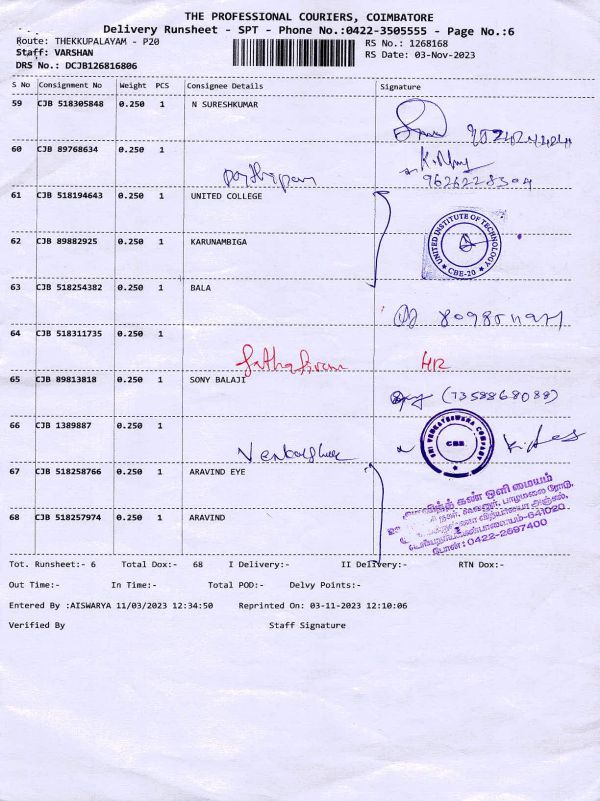 THE PROFESSIONAL COURIERS, COIMBATORE
Delivery Runsheet - SPT - Phone No.:0422-3505555 - Page No.:6
Route: THEKKUPALAYAM - P20
RS No.: 1268168
Staff: VARSHAN
RS Date: 03-Nov-2023
DRS No.: DCJB126816806
S No Consignment No Weight PCS Consignee Details Signature
59 CJB 518305848 0.250 1 N SURESHKUMAR
60 CJB 89768634 0.250 1
9626228304
61 CJB 518194643 0.250 1 UNITED COLLEGE
UNITED INSTITUTE OF TECHNOLOGY
CBE-20
62 CJB 89882925 0.250 1 KARUNAMBIGA
63 CJB 518254382 0.250 1 BALA
64 CJB 518311735 0.250 1
HR
65 CJB 89813818 0.250 1 SONY BALAJI
(7358868088)
66 CJB 1389887 0.250 1
SRI VENKATESWARA COMPANY
CBE.
67 CJB 518258766 0.250 1 ARAVIND EYE
கண் ஒளி மையம்
68 CJB 518257974 0.250 1 ARAVIND
போன் : 0422-2697400
Tot. Runsheet:- 6 Total Dox:- 68 I Delivery:- II Delivery:- RTN Dox:-
Out Time:- In Time:- Total POD:- Delvy Points:-
Entered By :AISWARYA 11/03/2023 12:34:50 Reprinted On: 03-11-2023 12:10:06
Verified By Staff Signature